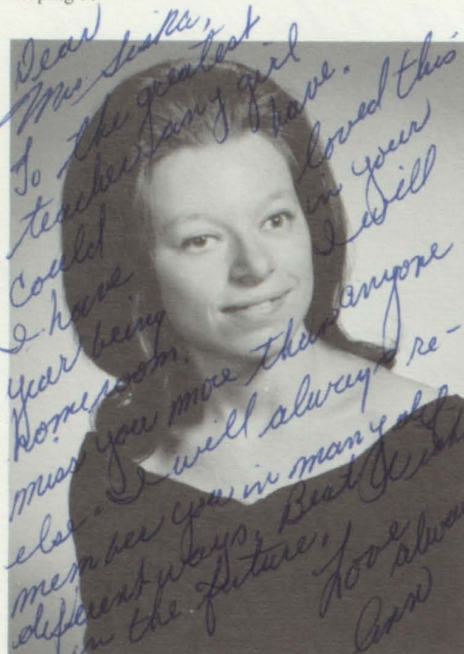 Dear
Mrs. Siska,
To the greatest
teacher any girl
could have.
I have loved this
year being in your
homeroom. I will
miss you more than anyone
else. I will always re-
member you in many
different ways. Best Wish
in the future.
Love always
Ann